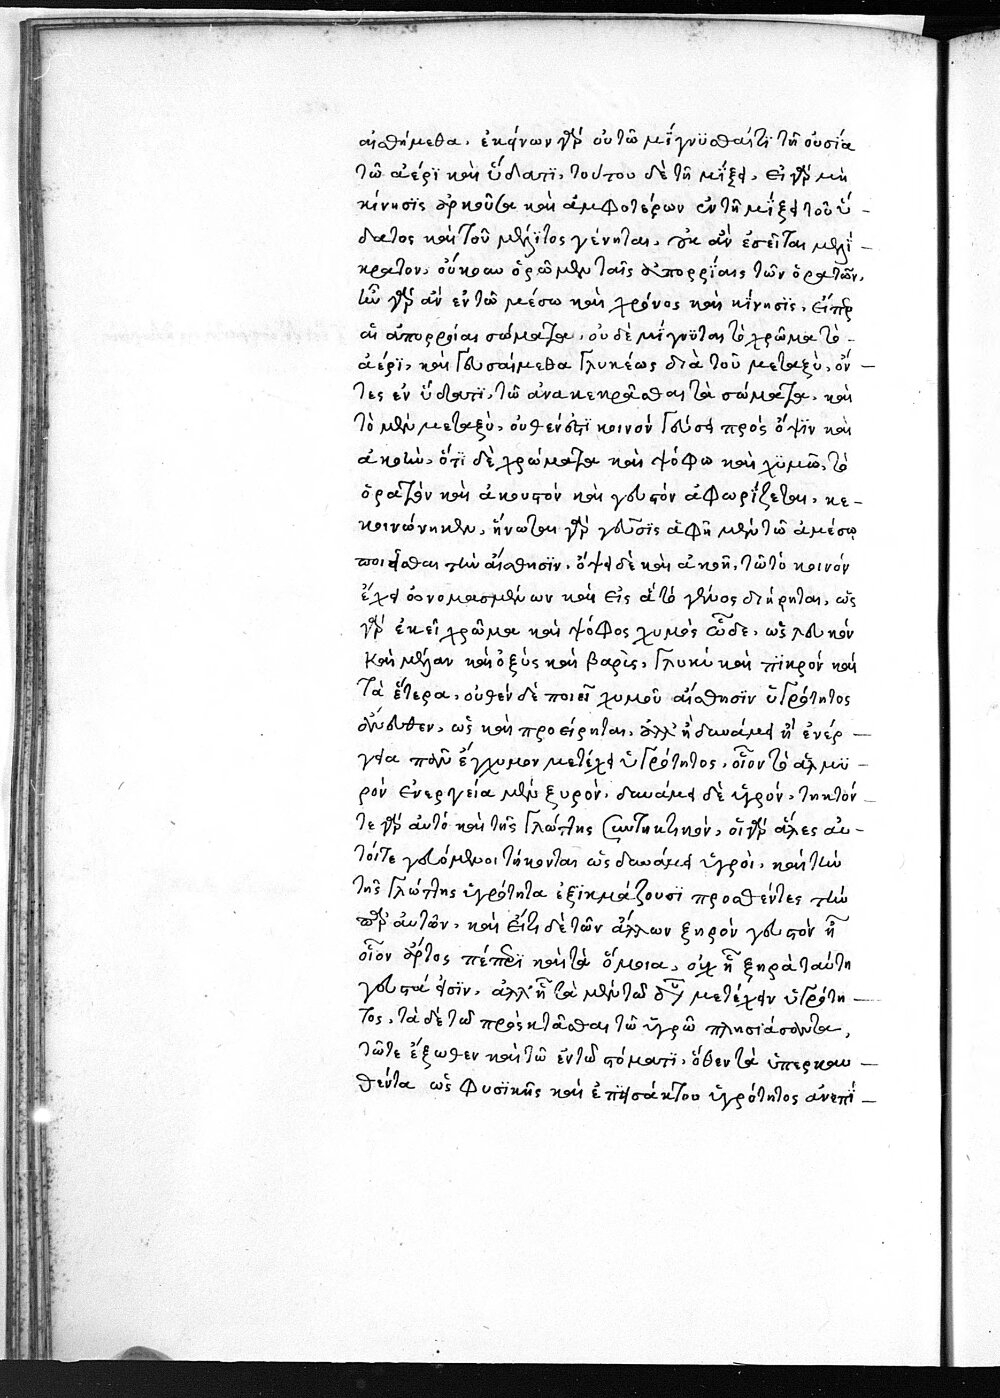 αἰσθήμεθα, ἐκείνων γὰρ οὕτω μίγνυσθαί τι τῇ οὐσίᾳ
τῶ ἀέρϊ καὶ ὕδατϊ, τούτου δὲ τῇ μίξει, εἰ γὰρ μὴ
κίνησϊς ἀρκοῦσα καὶ ἀμφοτέρων ἐν τῇ μίξει τοῦ ὕ –
δατος καὶ τοῦ μέλϊτος γένηται, οὐκ ἂν ἐσεῖται μελί –
κρατον, οὔκουν ὁρῶμεν ταῖς ἀπορροίαις τῶν ὁρατῶν,
ἦν γὰρ ἂν ἐν τῶ μέσω καὶ χρόνος καὶ κίνησϊς, εἴπερ
αἱ ἀπορροίαι σώματα, οὐδὲ μίγνϋται τὸ χρῶμα τῶ –
ἀέρϊ, καὶ γευσαίμεθα γλυκέως διὰ τοῦ μεταξὺ, ὄν –
τες ἐν ὕδατϊ, τῶ ἀνακεκρᾶσθαι τὰ σώματα, καὶ
τὸ μὲν μεταξὺ, οὐθέν ἐστϊ κοινὸν γεύσει πρὸς ὄψϊν καὶ
ἀκοὴν, ὅτϊ δὲ χρώματα καὶ ψόφω καὶ χϋμῶ, τὸ
ὁρατὸν καὶ ἀκουστὸν καὶ γευστὸν ἀφωρίζεται, κε –
κοινώνηκεν, ἥνωται γὰρ γεῦσϊς ἁφῇ μὲν τῶ ἀμέσῳ
ποιεῖσθαι τὴν αἴσθησϊν, ὄψει δὲ καὶ ἀκοῇ, τῶ τὸ κοινὸν
ἔχει ὀνομασμένων καὶ εἰς αὐτὸ γένος διήρηται, ὡς
γὰρ ἐκεῖ χρῶμα καὶ ψόφος χυμὸς ὧδε, ὡς λευκὸν
καὶ μέλαν καὶ ὀξὺς καὶ βαρὶς, γλυκὺ καὶ πϊκρὸν καὶ
τὰ ἕτερα, οὐθὲν δὲ ποιεῖ χυμοῦ αἴσθησϊν ὑγρότητος
ἄνευθεν, ὡς καὶ προείρηται, ἀλλ' ἢ δυνάμει ἢ ἐνέρ –
γεια πᾶν ἔγχυμον μετέχει ὑγρότητος, οἷον τὸ ἁλμϋ –
ρὸν ἐνεργεία μὲν ξυρὸν, δυνάμει δὲ ὑγρὸν, τηκτόν –
τε γὰρ αὐτὸ καὶ τῆς γλώττης συντηκτικὸν, οἱ γὰρ ἅλες αὐ –
τοί τε γευόμενοι τήκονται ὡς δυνάμει ὑγροὶ, καὶ τὴν
τῆς γλώττης ὑγρότητα ἐξικμάζουσϊ προσθέντες τὴν
παρ' αὐτῶν, καὶ εἴ τι δὲ τῶν ἄλλων ξηρὸν γευστὸν ἦ
οἷον ἄρτος πέπερϊ καὶ τὰ ὅμοια, οὐχ ἧ ξηρὰ ταύτη
γευστά εἰσϊν, ἀλλ' ἧ τὰ μὲν τῶ μετέχειν ὑγρότη –
τος, τὰ δὲ τῶ προσκτᾶσθαι τῶ ὑγρῶ πλησιάσοντα,
τῶ τε ἔξωθεν καὶ τῶ ἐν τῶ στόματϊ, ὅθεν τὰ ὑπερκαυ –
θέντα ὡς φυσϊκῆς καὶ ἐπεισάκτου ὑγρότητος ἀνεπί –